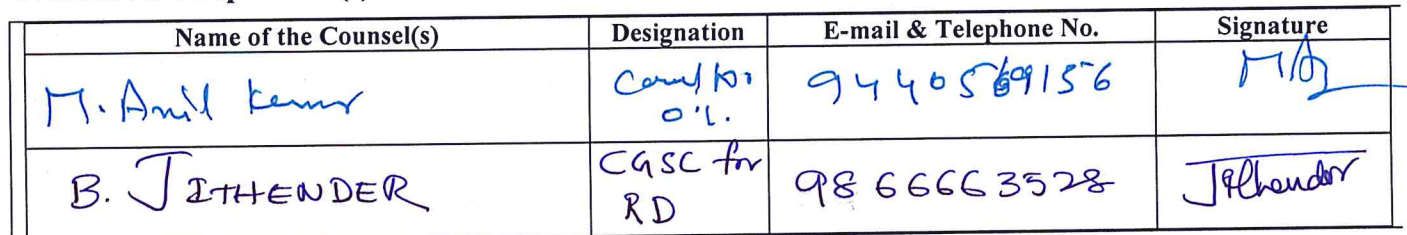 Name of the Counsel(s) Designation E-mail & Telephone No. Signature
M. Anil Kumar Counsel for 9440569156
O.L.
B. JITHENDER CGSC for 9866663528 Jithender
RD